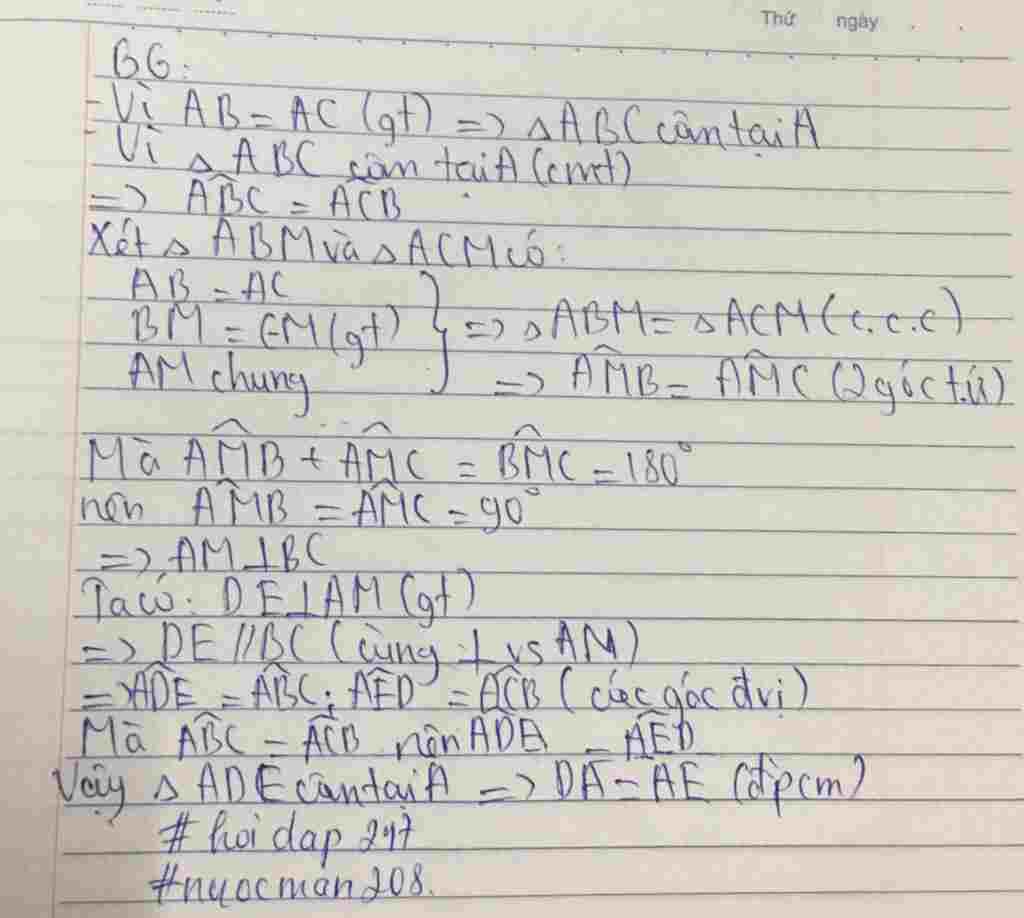 Thứ ngày
BG:
- Vì AB = AC (gt) => △ABC cân tại A
- Vì △ABC cân tại A (cmt)
=> ABC = ACB
Xét △ABM và △ACM có:
AB = AC
BM = CM (gt) } => △ABM = △ACM (c.c.c)
AM chung => AMB = AMC (2 góc t.ứ)
Mà AMB + AMC = BMC = 180°
nên AMB = AMC = 90°
=> AM ⊥ BC
Ta có: DE ⊥ AM (gt)
=> DE // BC (cùng ⊥ vs AM)
=> ADE = ABC; AED = ACB (các góc đvị)
Mà ABC = ACB nên ADE = AED
Vậy △ADE cân tại A => DA = AE (đpcm)
# hoi dap 247
#ngocman208.